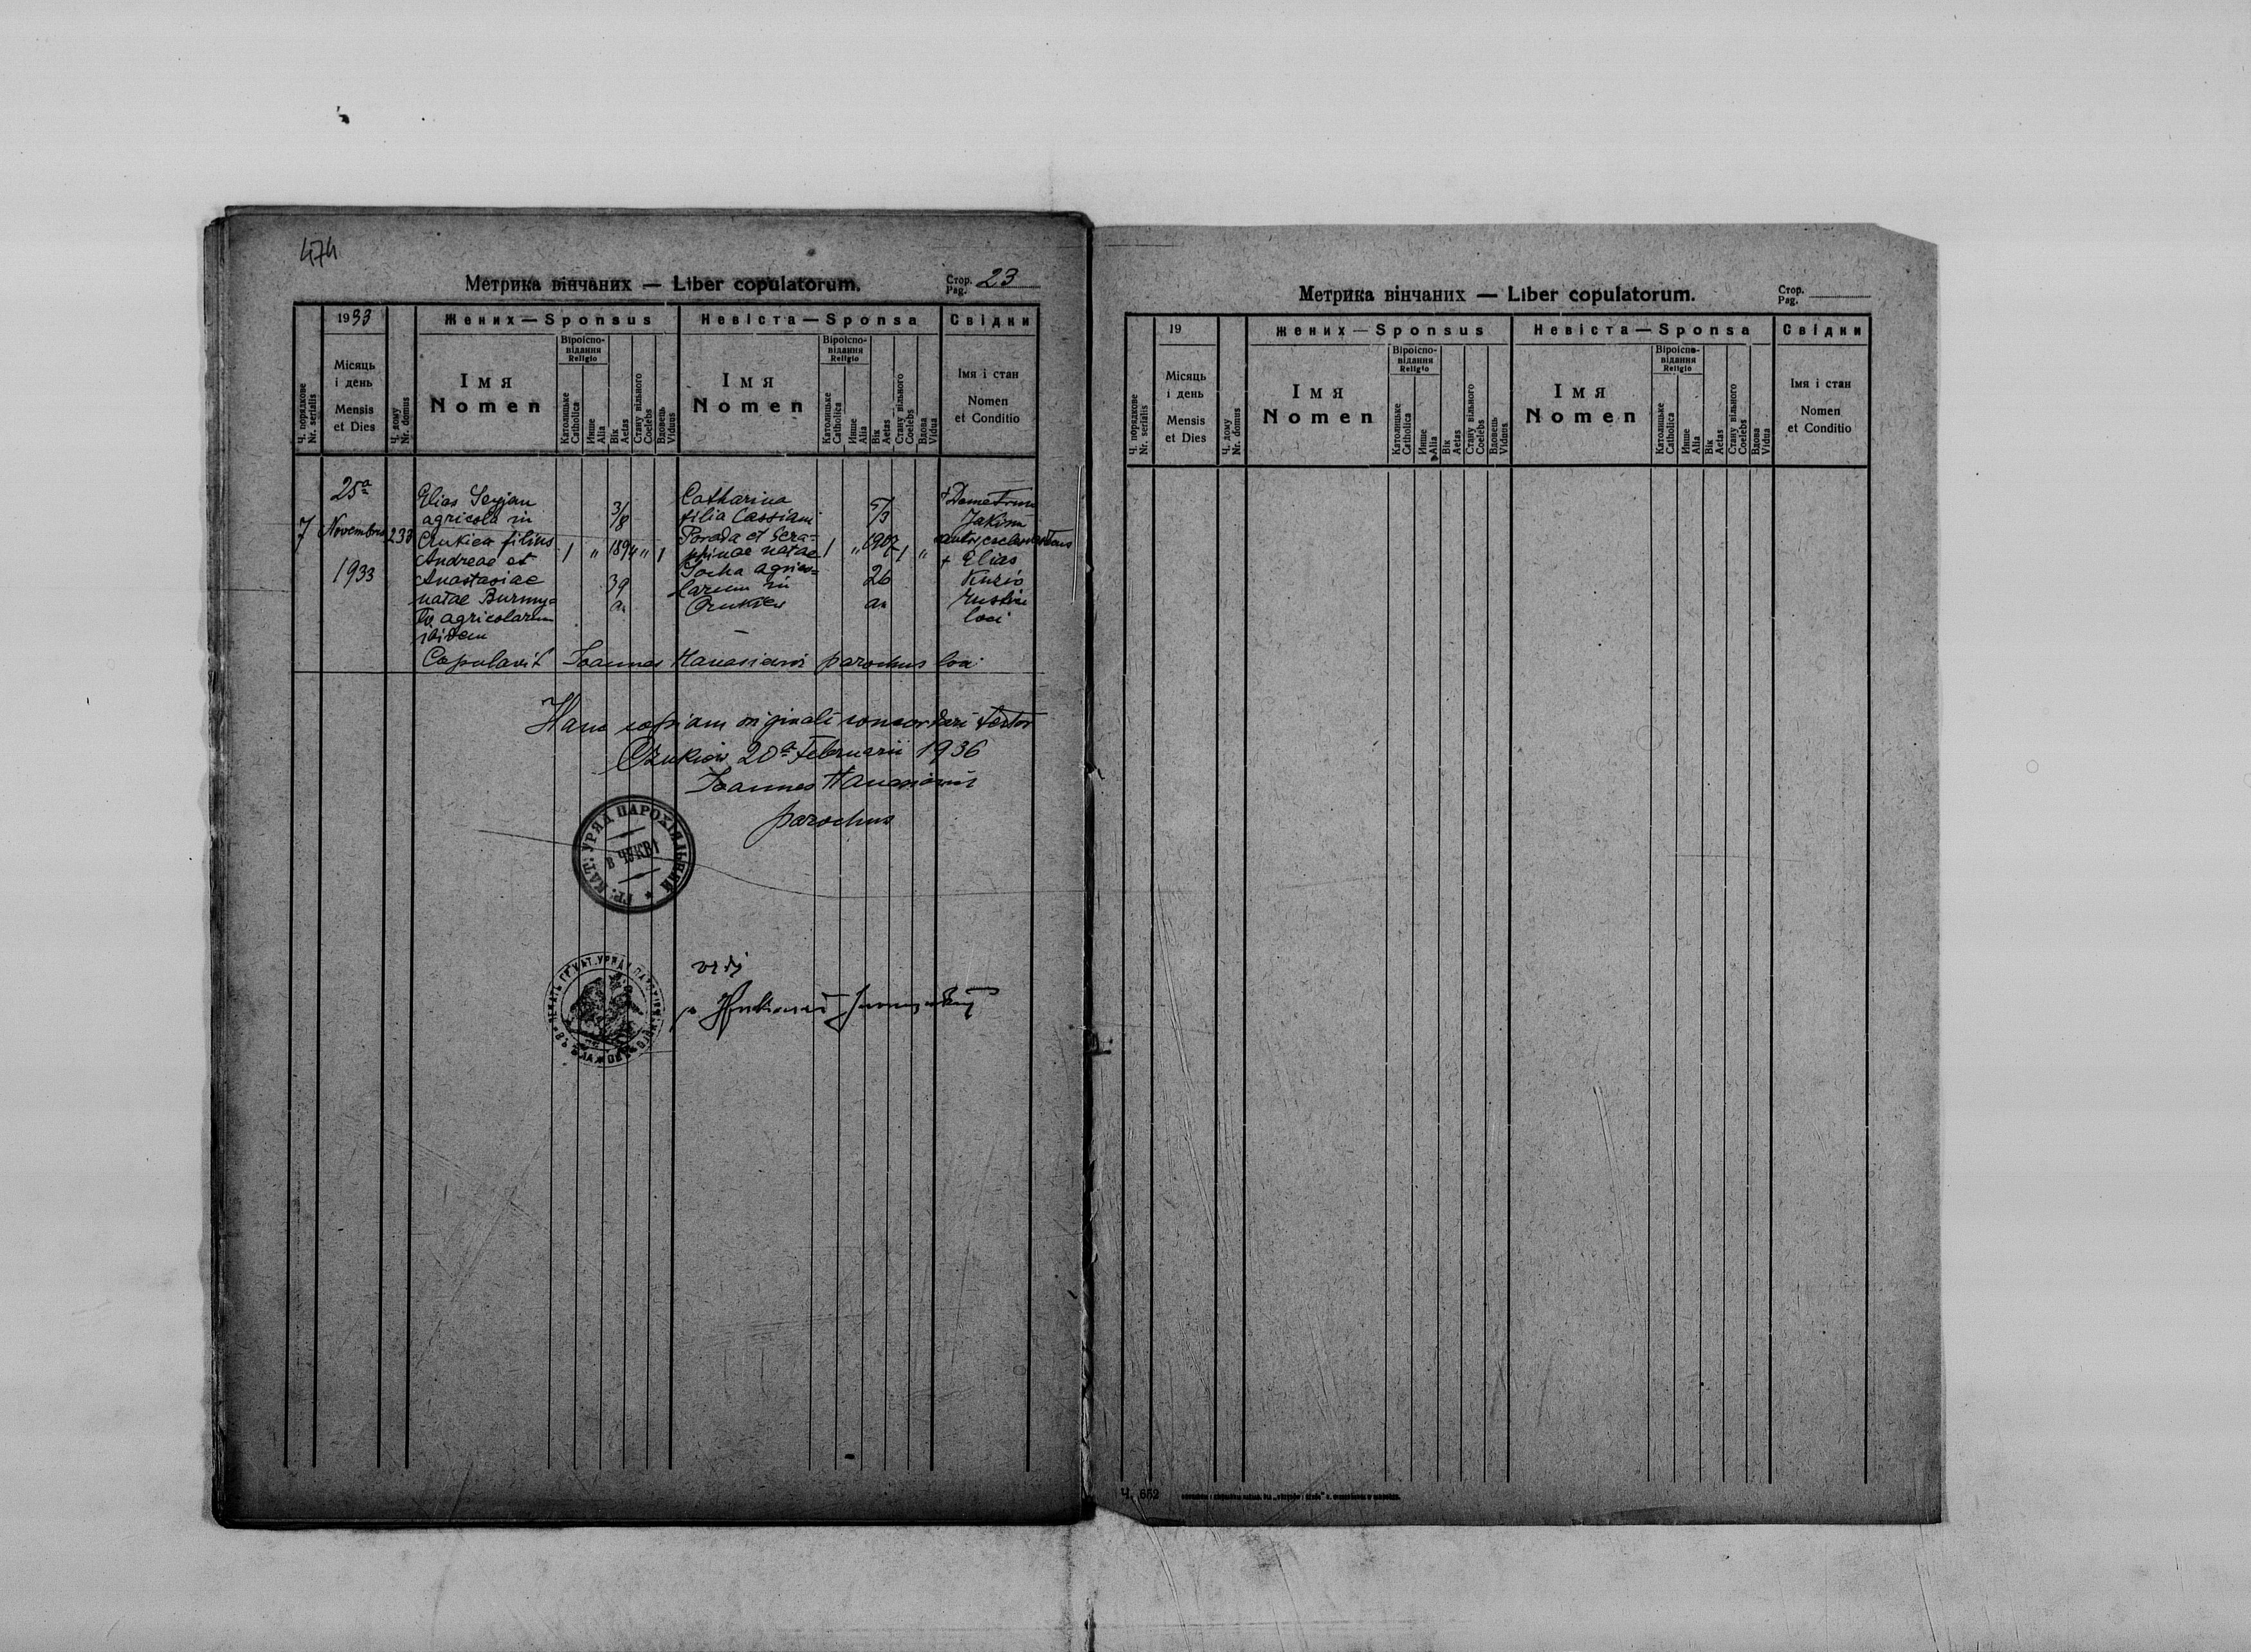 474
Метрика вінчаних — Liber copulatorum.
Стор. Pag. 23
1933
Жених — Sponsus
Невіста — Sponsa
Свідки
Ч. порядкове
Nr. serialis
Місяць
і день
Mensis
et Dies
Ч. дому
Nr. domus
Імя
Nomen
Віроіспо-
відання
Religio
Католицьке
Catholica
Инше
Alia
Вік
Aetas
Стану вільного
Coelebs
Вдовець
Viduus
Імя
Nomen
Віроіспо-
відання
Religio
Католицьке
Catholica
Инше
Alia
Вік
Aetas
Стану вільного
Coelebs
Вдова
Vidua
Імя і стан
Nomen
et Conditio
7
25a
Novembris
1933
233
Elias
agricola in
filius
Andreae et
Anastasiae
natae Burmy=
agricolarum
ibidem
1 „
3/8
1894
39
an
„ 1
Catharina
filia Cassiani
Porada et Sera-
phinae natae
Socha agrico=
larum in
1 „
5/3
1907
26
an
1 „
+ Demetrius
Jakim
+ Elias
loci
Copulavit Ioannes parochus loci
Hanc copiam originali concordari testor
Czukiew 20a Februarii 1936
Ioannes
parochus
ГР. КАТ. УРЯД ПАРОХІЯЛЬНИЙ
В ЧУКВІ
Метрика вінчаних — Liber copulatorum.
Стор.
Pag.
19
Жених — Sponsus
Невіста — Sponsa
Свідки
Ч. порядкове
Nr. serialis
Місяць
і день
Mensis
et Dies
Ч. дому
Nr. domus
Імя
Nomen
Віроіспо-
відання
Religio
Католицьке
Catholica
Инше
Alia
Вік
Aetas
Стану вільного
Coelebs
Вдовець
Viduus
Імя
Nomen
Віроіспо-
відання
Religio
Католицьке
Catholica
Инше
Alia
Вік
Aetas
Стану вільного
Coelebs
Вдова
Vidua
Імя і стан
Nomen
et Conditio
Ч. 652